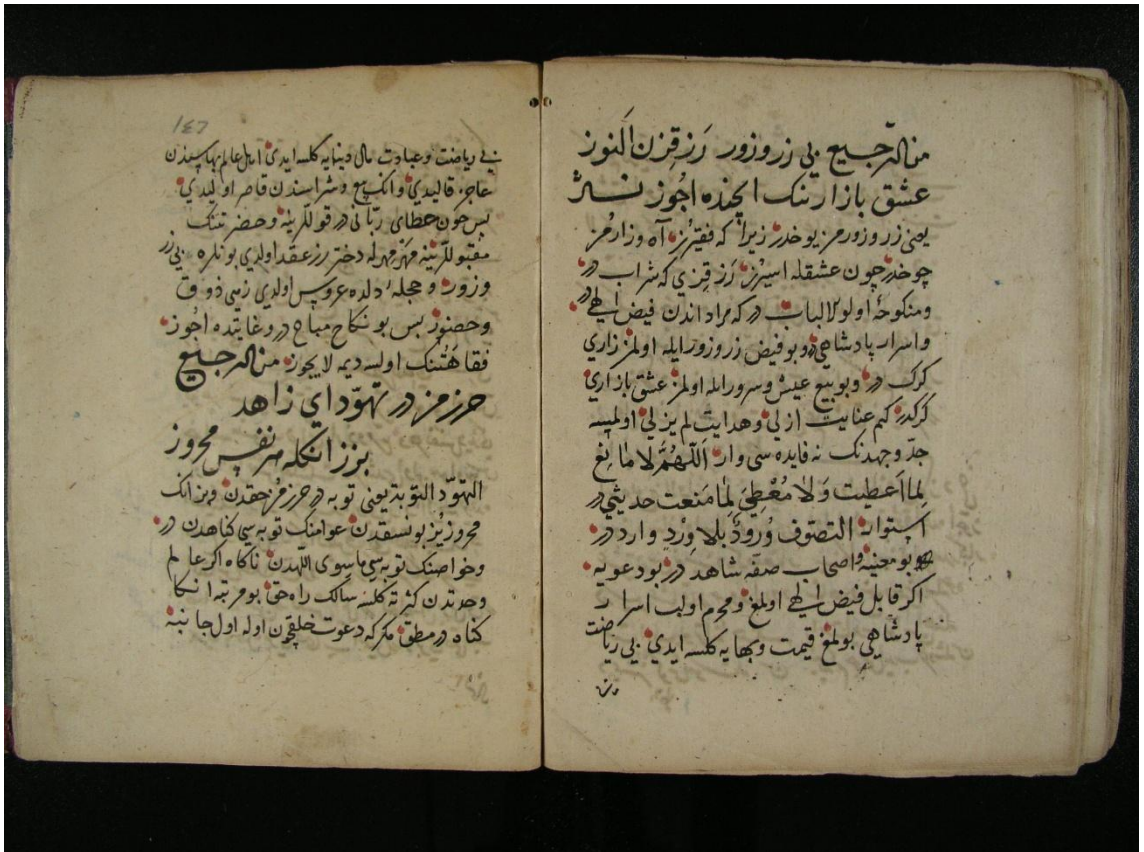 من الترجيع بي زر وزور رَز قِزن اَلنوز
عشق بازارنك ايچنده اجُوز
يعنى زر وزورمز يوخدر زيرا كه فقيرز آه وزارمز
چوخدر چون عشقله اسيرز رَز قِزي كه شراب در
ومنكوحهٔ اولو لالباب در كه مراد اندن فيض الهي در
واسرار پادشاهي وبو فيض زر وزور ايله اولمز زاري
كرك در وبو بيع عيش وسرور ايله اولمز عشق بازاري
كركدر كم عنايت ازلي وهدايت لم يزلي اولميسه
جدّ وجهدنك نه فايده سي وار اَللّهُمَّ لا مانِعَ
لِما اَعطيت وَلا مُعْطِيَ لِما مَنعت حديثي در
التصوف وُرودٌ بلا وِرْدٍ وارد در
بو معنيه واصحاب صفه شاهد در بو دعويه
اكر قابل فيض الهي اولمغ ومحرم اولب اسرار
پادشاهي بولمغ قيمت وبهايه كلسه ايدي بي رياضت
١٤٦
رياضت وعبادت مال ودنيايه كلسه ايدي اهل عالم بهاسندن
عاجز قاليدي وانك بيع وشراسندن قاصر اوليدي
بس چون عطاي ربّاني در قوللرينه وحضرتنك
مقبوللرينه مهر له دختر رز عقد اولدي بونلره بي زر
وزور وحجلهٔ دلده عروس اولدي زهي ذوق
وحضور بس بو نكاح مباح در وغايتده اجُوز
فقاهَتنك اولسه ديمه لايجوز من الترجيع
حرزمز در تهوّد اي زاهد
بزز انكله هر نفس محروز
التهوّد التوبة يعنى توبه در حرزمز حقدن وبز انك
محروزيز بو سبقدن عوامنك توبه سي كناهدن در
وخواصنك توبه سي ماسوى اللهدن ناكاه اكر عالم
وحدتدن كثرته كلسه سالك راه حق بو مرتبه انكا
كناه در مطلق مكر كه دعوت خلقچون اوله اول جانبه